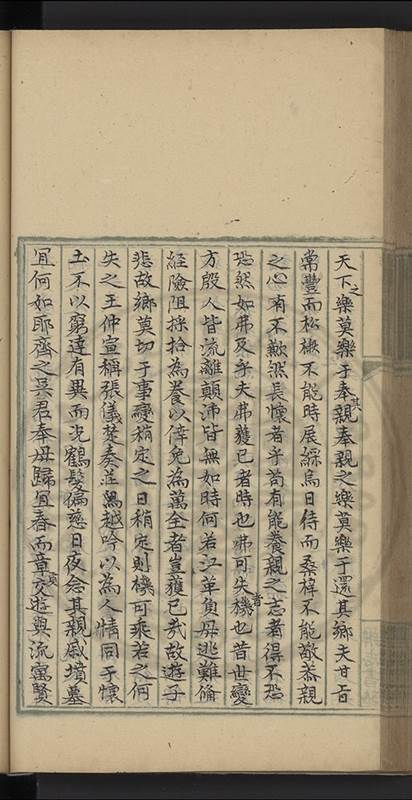 天下之樂莫樂于奉其親奉親之樂莫樂于還其鄉夫甘旨
常豐而松楸不能時展綵烏日侍而桑梓不能敬恭親
之心有不歉然長懷者乎苟有能養親之志者得不恐
恐然如弗及乎夫弗獲已者時也弗可失者機也昔世變
方殷人皆流離顛沛皆無如時何若江革負母逃難備
經險阻採拾為養以倖免為萬全者豈獲已哉故遊子
悲故鄉莫切于事變稍定之日稍定則機可乘若之何
失之王仲宣稱張儀楚奏莊舄越吟以為人情同于懷
土不以窮達有異而况鶴髮偏慈日夜念其親戚墳墓
宜何如耶齊之吳君奉母歸宜春而章交遊與流寓賢